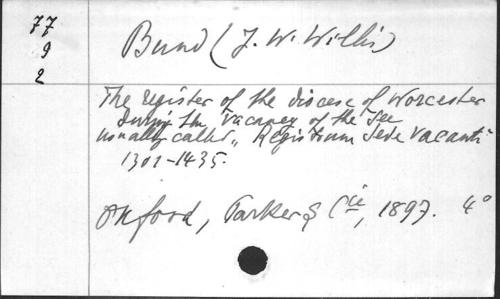 77
9
2
Bund (J. W. Willis)
The register of the diocese of Worcester
during the vacancy of the see
usually called „Registrum Sede Vacanti"
1301-1435.
Oxford, Parker & Cie, 1897. 4°